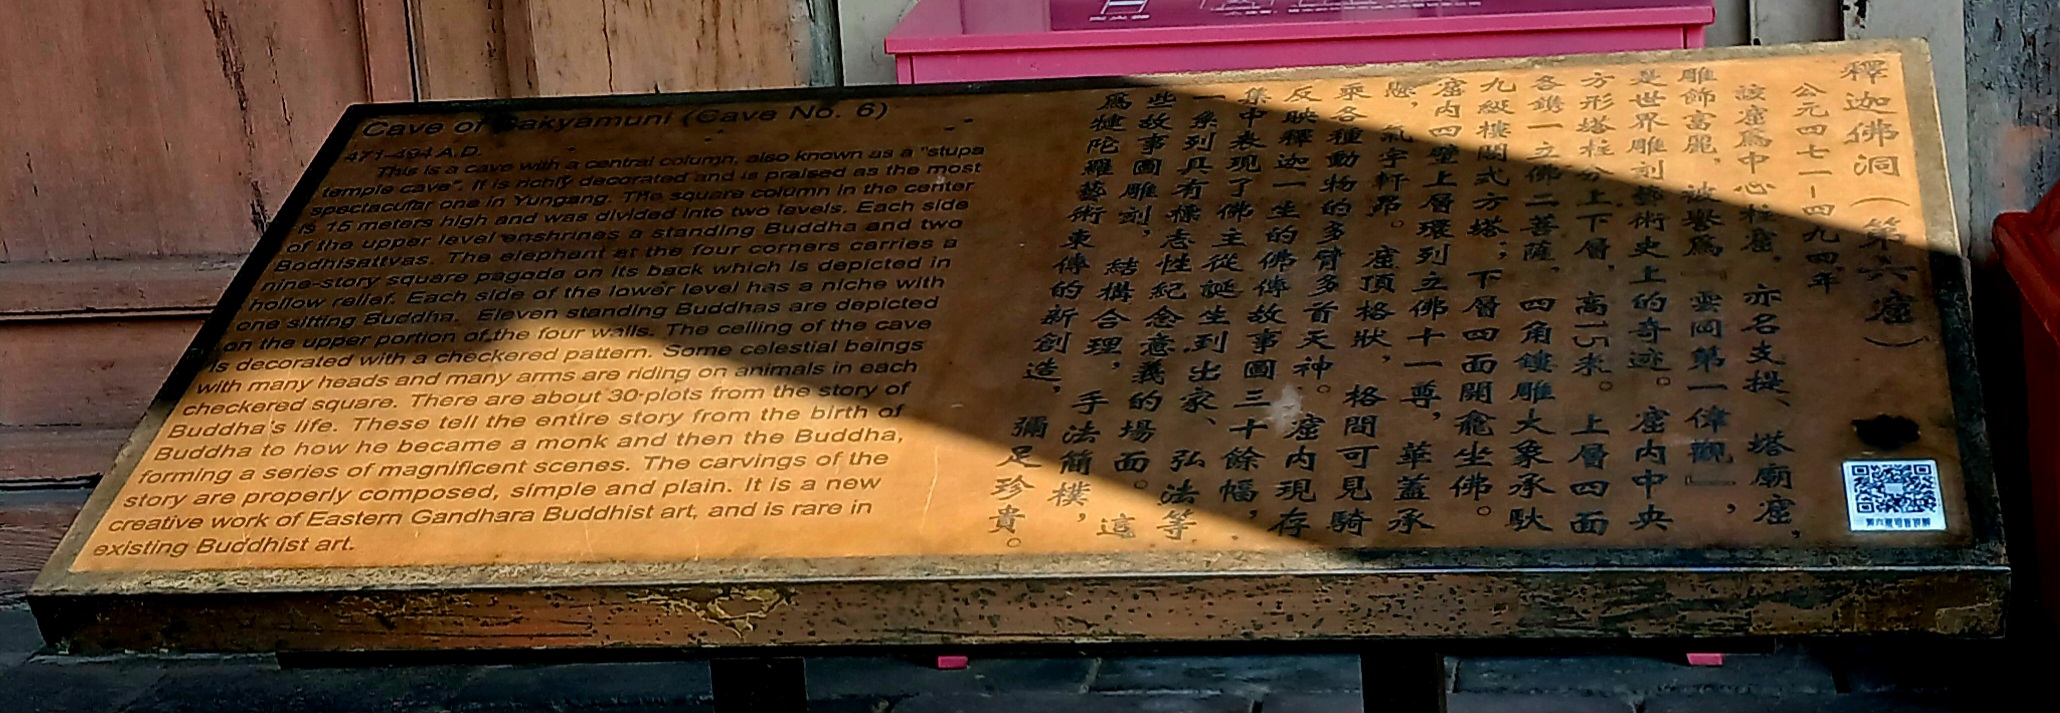 Cave of Sakyamuni (Cave No. 6)
471-494 A.D.
This is a cave with a central column, also known as a "stupa
temple cave". It is richly decorated and is praised as the most
spectacular one in Yungang. The square column in the center
is 15 meters high and was divided into two levels. Each side
of the upper level enshrines a standing Buddha and two
Bodhisattvas. The elephant at the four corners carries a
nine-story square pagoda on its back which is depicted in
hollow relief. Each side of the lower level has a niche with
one sitting Buddha. Eleven standing Buddhas are depicted
on the upper portion of the four walls. The ceiling of the cave
is decorated with a checkered pattern. Some celestial beings
with many heads and many arms are riding on animals in each
checkered square. There are about 30 plots from the story of
Buddha's life. These tell the entire story from the birth of
Buddha to how he became a monk and then the Buddha,
forming a series of magnificent scenes. The carvings of the
story are properly composed, simple and plain. It is a new
creative work of Eastern Gandhara Buddhist art, and is rare in
existing Buddhist art.
釋迦佛洞（第六窟）
公元四七一－四九四年
該窟爲中心柱窟，亦名支提、塔廟窟，
雕飾富麗，被譽爲『雲岡第一偉觀』，
是世界雕刻藝術史上的奇迹。窟内中央
方形塔柱分上下層，高15米。上層四面
各鐫一立佛二菩薩，四角鏤雕大象承馱
九級樓閣式方塔；下層四面開龕坐佛。
窟内四壁上層環列立佛十一尊，華蓋承
懸，氣宇軒昂。窟頂格狀，格間可見騎
乘各種動物的多臂多首天神。窟内現存
反映釋迦一生的佛傳故事圖三十餘幅，
集中表現了佛主從誕生到出家、弘法等
一系列具有標志性紀念意義的場面。這
些故事圖雕刻，結構合理，手法簡樸，
爲犍陀羅藝術東傳的新創造，彌足珍貴。